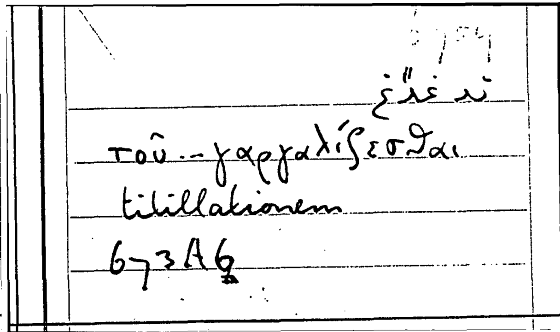 τοῦ -- γαργαλίζεσθαι
titillationem
673 A6